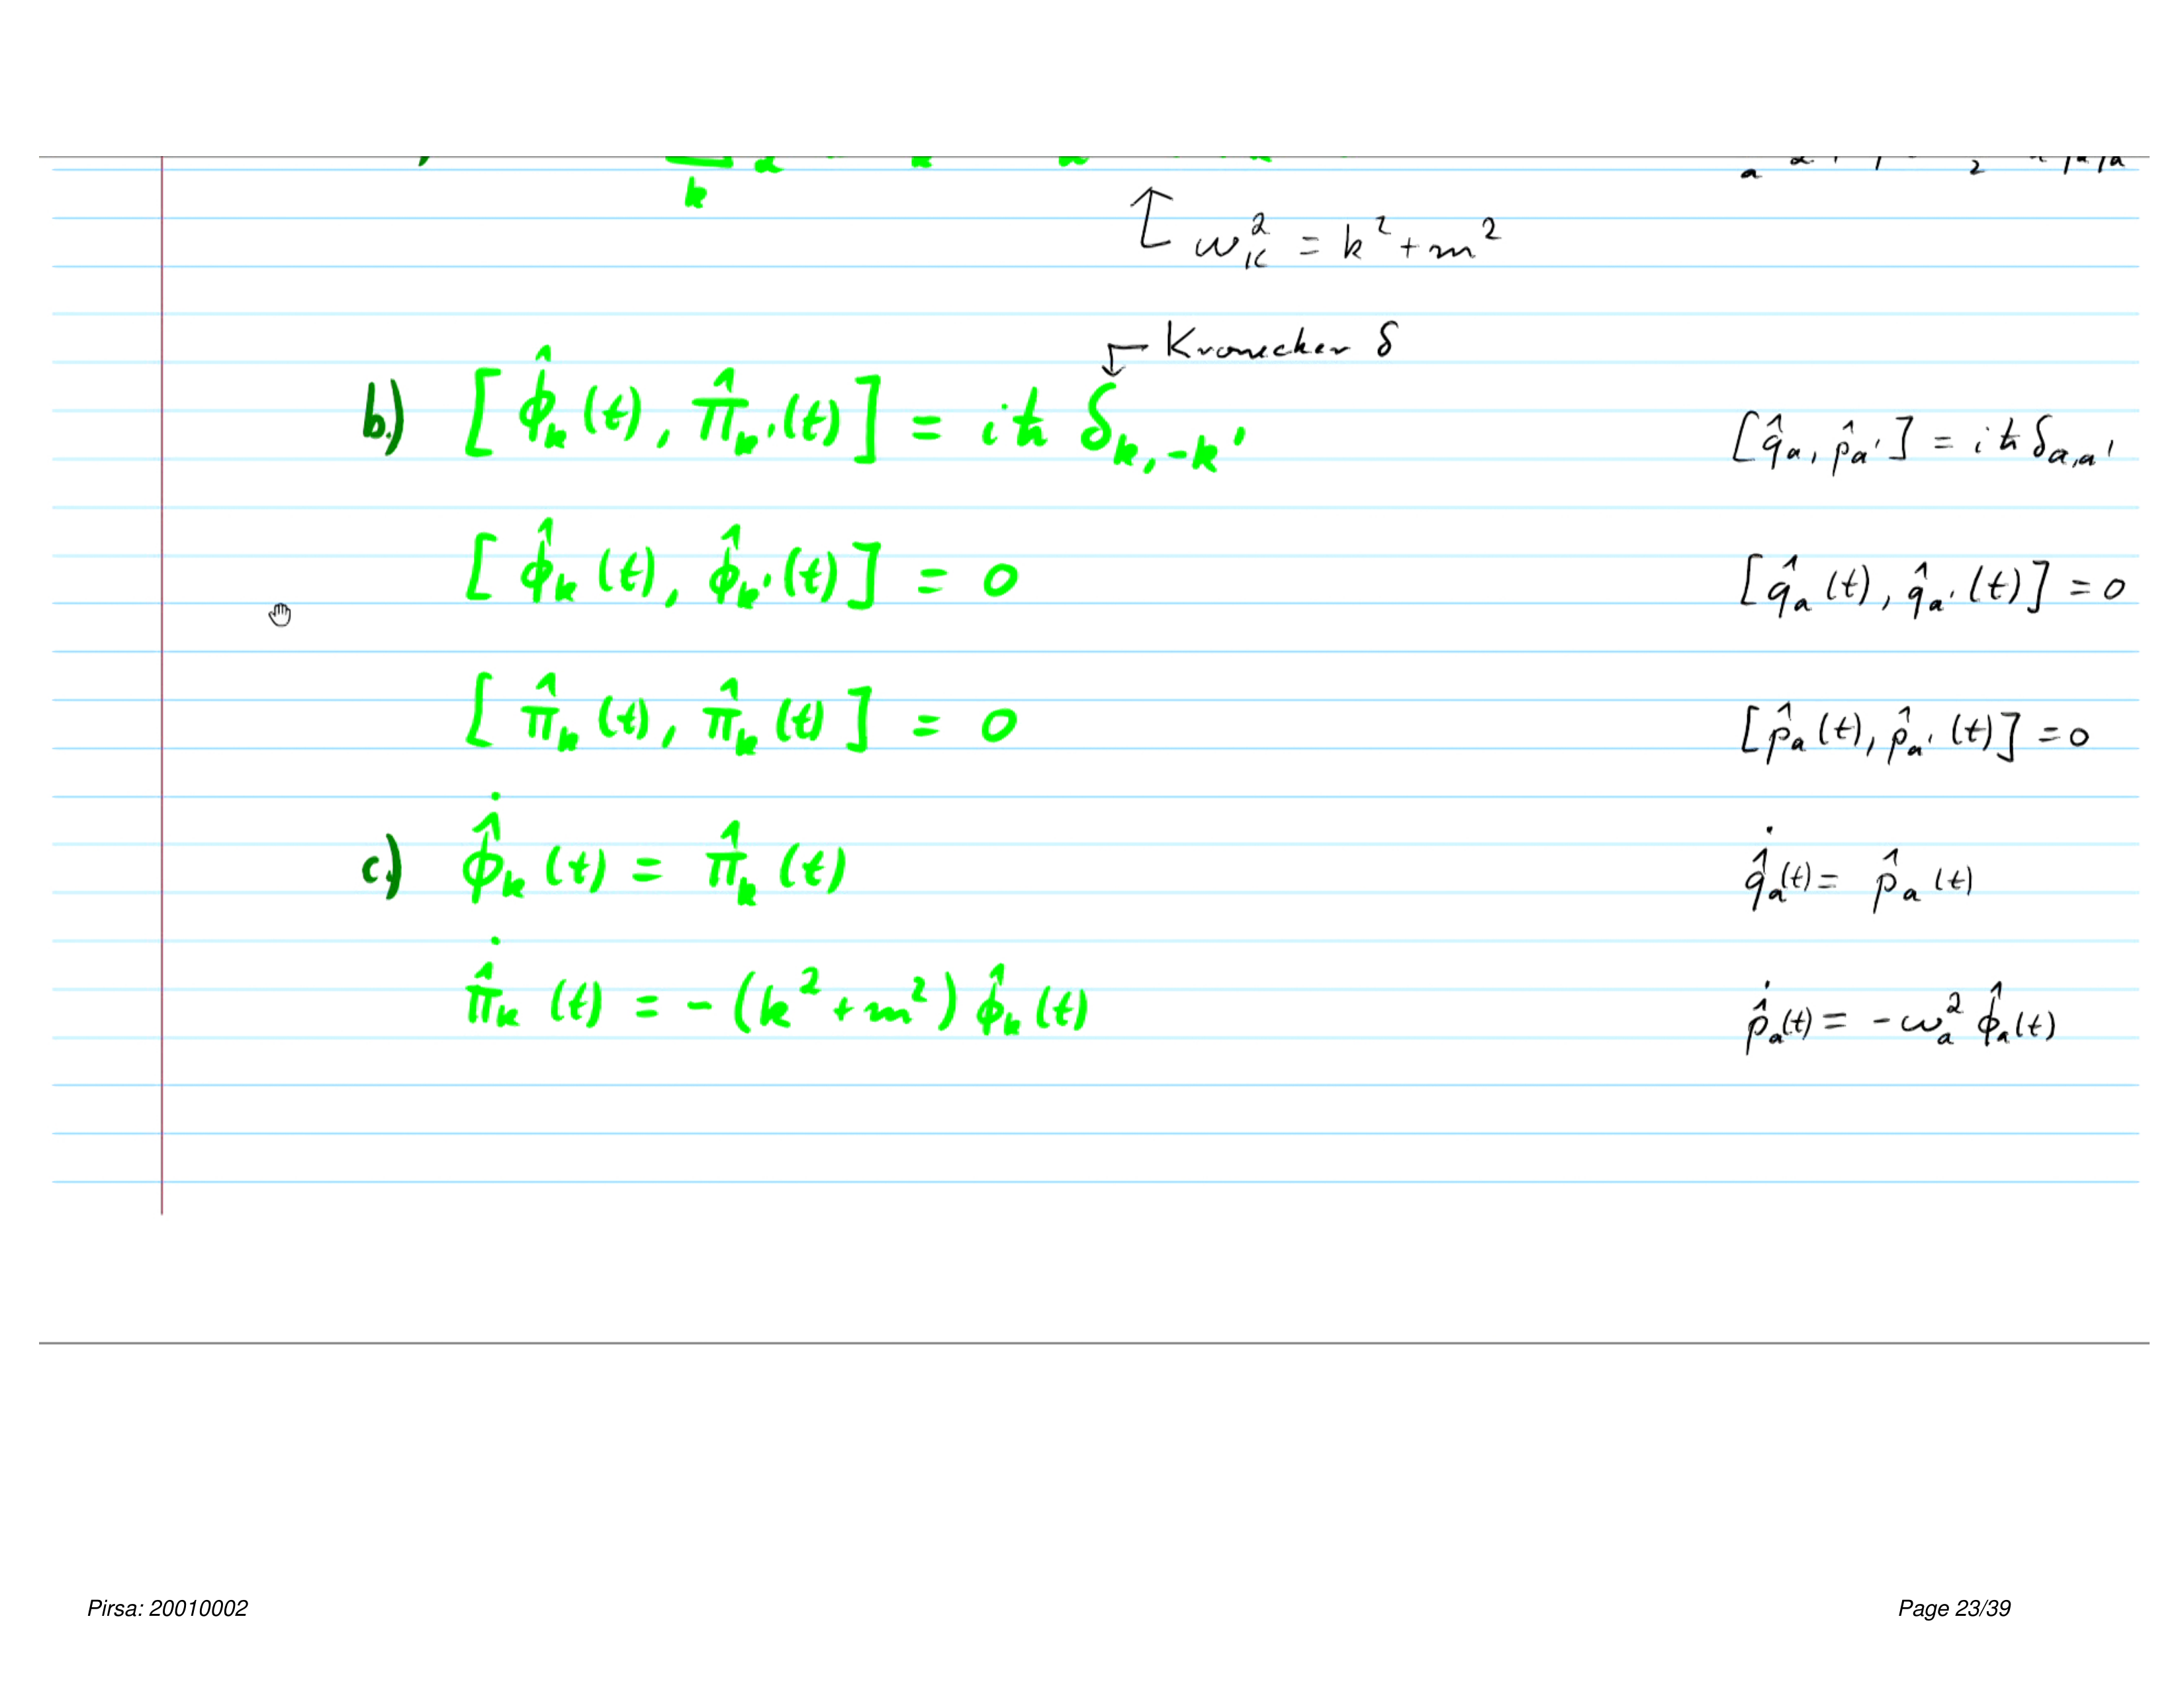 k
ω_k² = k² + m²
Kronecker δ
b.) [φ̂_k(t), π̂_k'(t)] = iħ δ_k,-k' [q̂_a, p̂_a'] = iħ δ_a,a'
[φ̂_k(t), φ̂_k'(t)] = 0 [q̂_a(t), q̂_a'(t)] = 0
[π̂_k(t), π̂_k(t)] = 0 [p̂_a(t), p̂_a'(t)] = 0
c.) φ̂̇_k(t) = π̂_k(t) q̂̇_a(t) = p̂_a(t)
π̂̇_k(t) = -(k² + m²) φ̂_k(t) p̂̇_a(t) = -ω_a² φ̂_a(t)
Pirsa: 20010002 Page 23/39